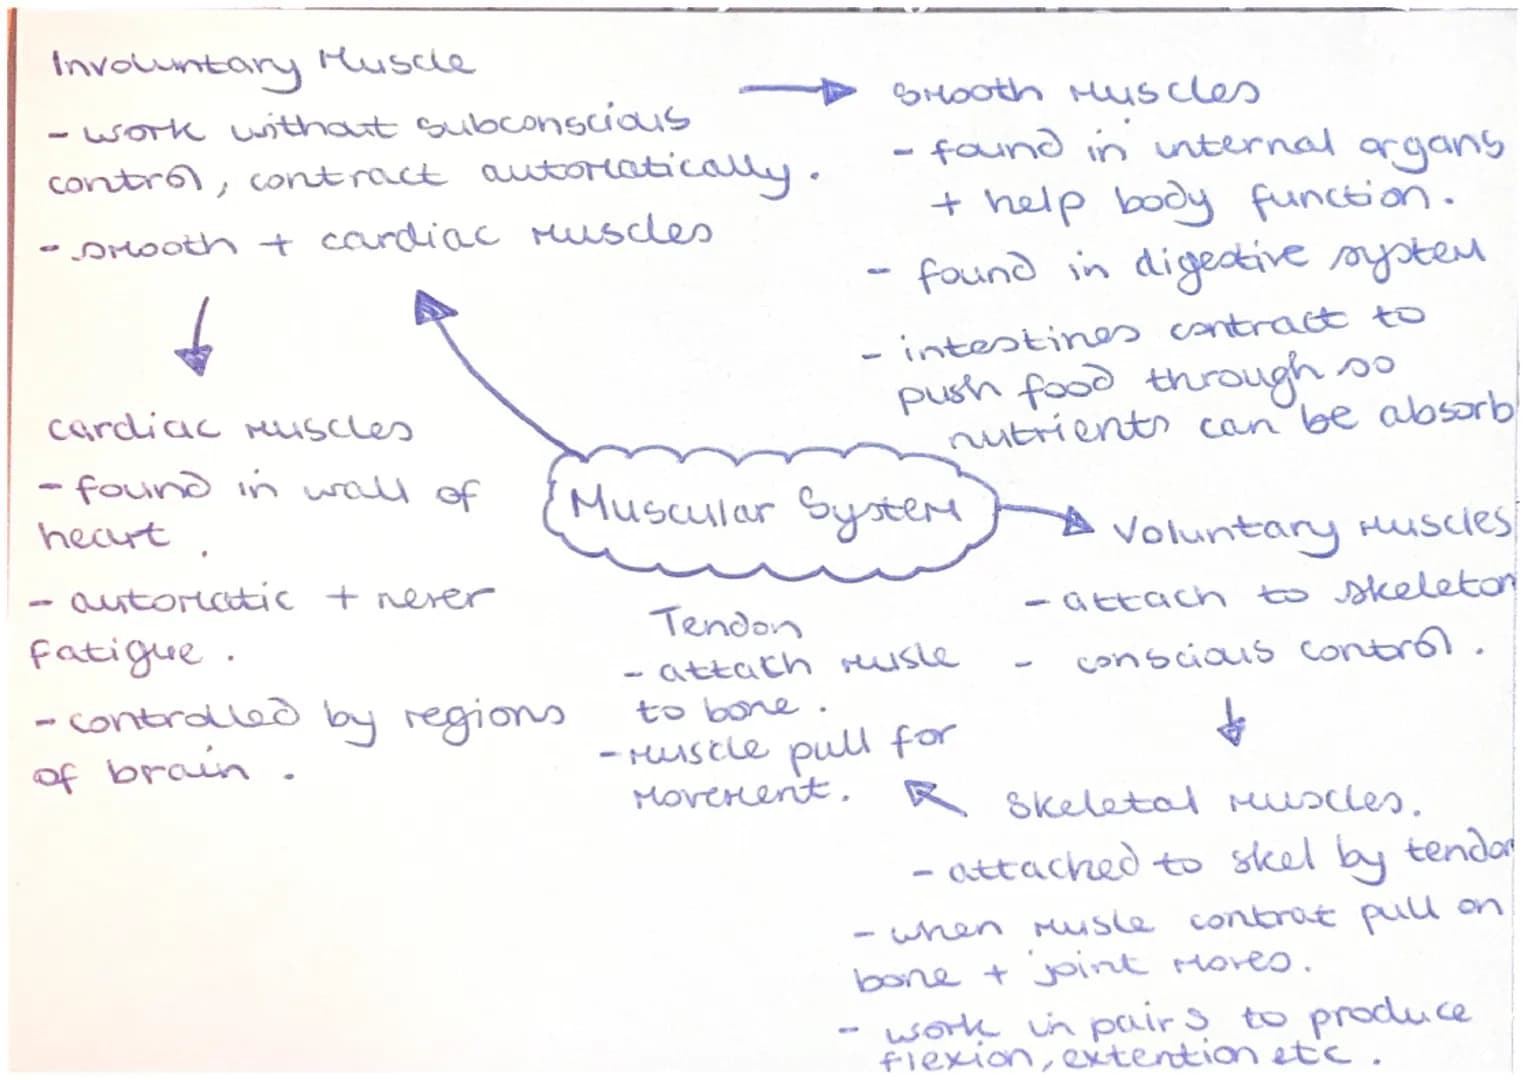 Involuntary Muscle
- work without subconscious
control, contract automatically.
- smooth + cardiac muscles
Smooth Muscles
- found in internal organs
+ help body function.
- found in digestive system
- intestines contract to
push food through so
nutrients can be absorb
cardiac muscles
- found in wall of
heart.
- automatic + never
fatigue.
- controlled by regions
of brain.
Muscular System
Voluntary Muscles
- attach to skeleton
- conscious control.
Tendon
- attach musle
to bone.
- muscle pull for
movement.
Skeletal muscles.
- attached to skel by tendon
- when musle contrat pull on
bone + joint moves.
- work in pairs to produce
flexion, extention etc.